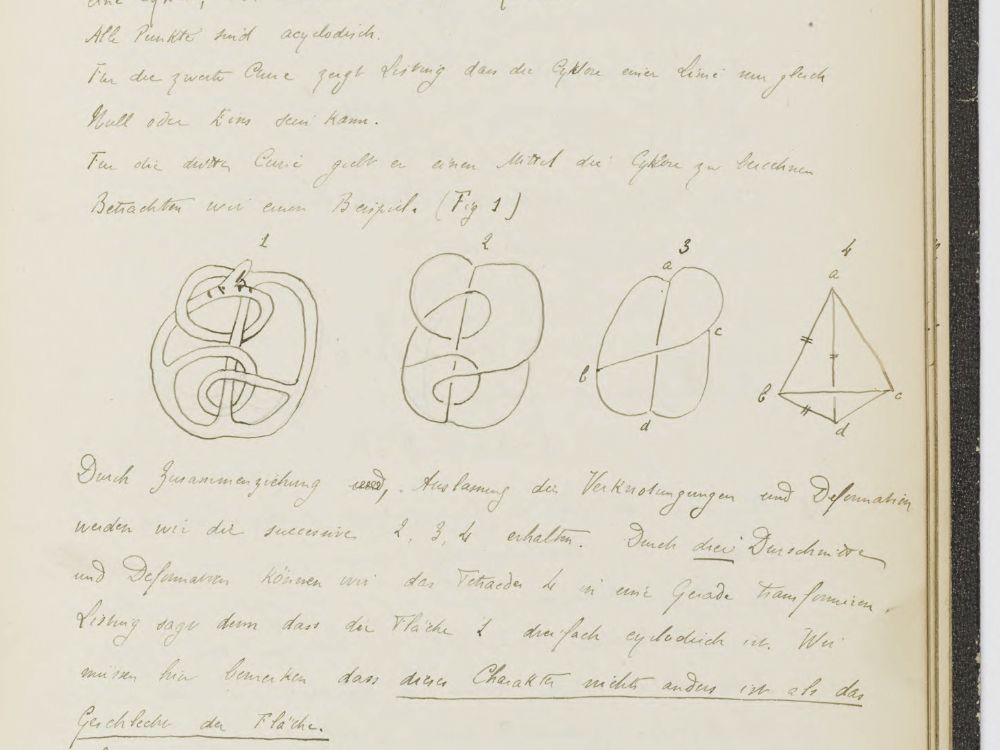 Alle Punkte sind acyclodisch.
Für die zweite Curve zeigt Listing dass die Cyklose einer Linie nur gleich
Null oder Eins sein kann.
Für die dritte Curie giebt er einen Mittel die Cyklose zu berechnen
Betrachten wir einen Beispiel. (Fig 1)
1 2 3 4
b a a
c
b b c
d d
Durch Zusammenziehung, Auslassung der Verknotungungen und Deformation
werden wir die successive 2, 3, 4 erhalten. Durch drei Durschnitte
und Deformation können wir das Tetraeder 4 in eine Gerade transformiren.
Listing sagt denn dass die Fläche 1 dreifach cyclodisch ist. Wir
müssen hier bemerken dass dieses Charakter nichts anders ist als das
Geschlecht der Fläche.